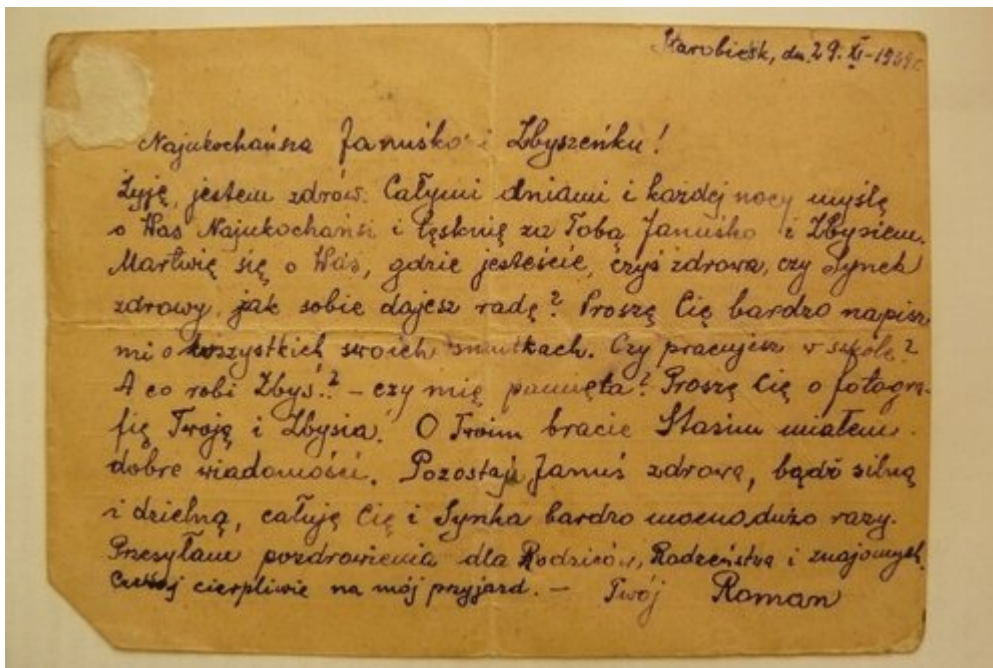 Starobielsk, dn. 29. XI-1939r.
Najukochańsza Januśko i Zbyszeńku!
Żyję, jestem zdrów. Całymi dniami i każdej nocy myślę
o Was Najukochańsi i tęsknię za Tobą Januśko i Zbysiem.
Martwię się o Was, gdzie jesteście, czyś zdrowa, czy Synek
zdrowy, jak sobie dajesz radę? Proszę Cię bardzo napisz
mi o wszystkich swoich smutkach. Czy pracujesz w szkole?
A co robi Zbyś? – czy mię pamięta? Proszę Cię o fotogra-
fię Twoją i Zbysia. O Twoim bracie Stasiu miałem
dobre wiadomości. Pozostaj Januś zdrową, bądź silną
i dzielną, całuję Cię i Synka bardzo mocno, dużo razy.
Przesyłam pozdrowienia dla Rodziców, Rodzeństwa i znajomych.
cierpliwie na mój przyjazd. – Twój Roman